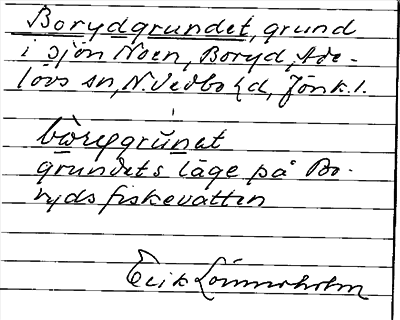 Borydgrundet, grund
i sjön Noen, Boryd, Ade-
lövs sn, N. Vedbo hd, Jönk. l.
bòrygrùnet
grundets läge på Bo-
ryds fiskevatten
Erik Lönnerholm